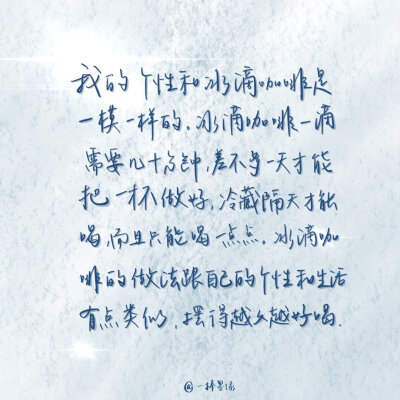 我的个性和冰滴咖啡是
一模一样的.冰滴咖啡一滴
需要几十分钟,差不多一天才能
把一杯做好,冷藏隔天才能
喝,而且只能喝一点点.冰滴咖
啡的做法跟自己的个性和生活
有点类似.摆得越久越好喝.
@一棒墨绿